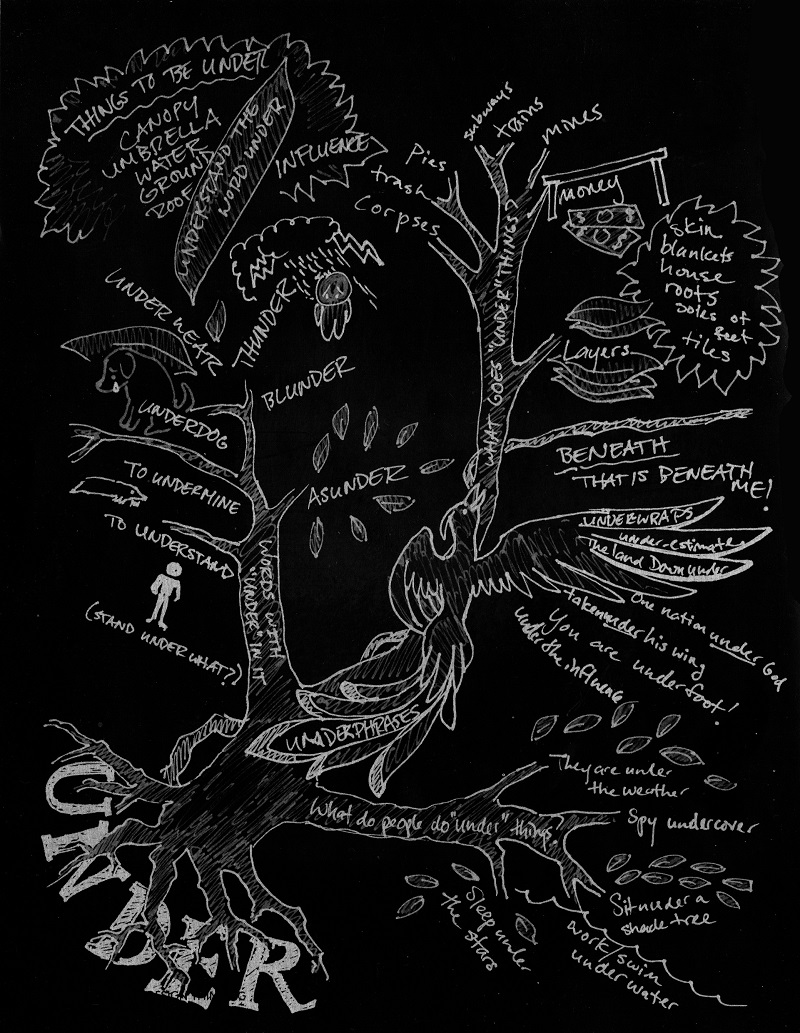 THINGS TO BE UNDER
CANOPY
UMBRELLA
WATER
GROUND
ROOF
UNDERSTAND THE
WORD UNDER
INFLUENCE
UNDERWEAR
THUNDER
BLUNDER
UNDERDOG
ASUNDER
TO UNDERMINE
TO UNDERSTAND
(STAND UNDER WHAT?)
WORDS WITH
"UNDER" IN IT
Pies
trash
Corpses
subways
trains
mines
money
$ O $
$ O $
WHAT GOES "UNDER" THINGS?
skin
blankets
house
roots
soles of
feet
tiles
Layers
BENEATH
THAT IS BENEATH
ME!
UNDERWRAPS
under-estimate
The land Down under
One nation under God
taken under his wing
You are underfoot!
under the influence
UNDERPHRASES
What do people do "under" things?
They are under
the weather
Spy undercover
Sit under a
shade tree
work/swim
under water
Sleep under
the stars
UNDER